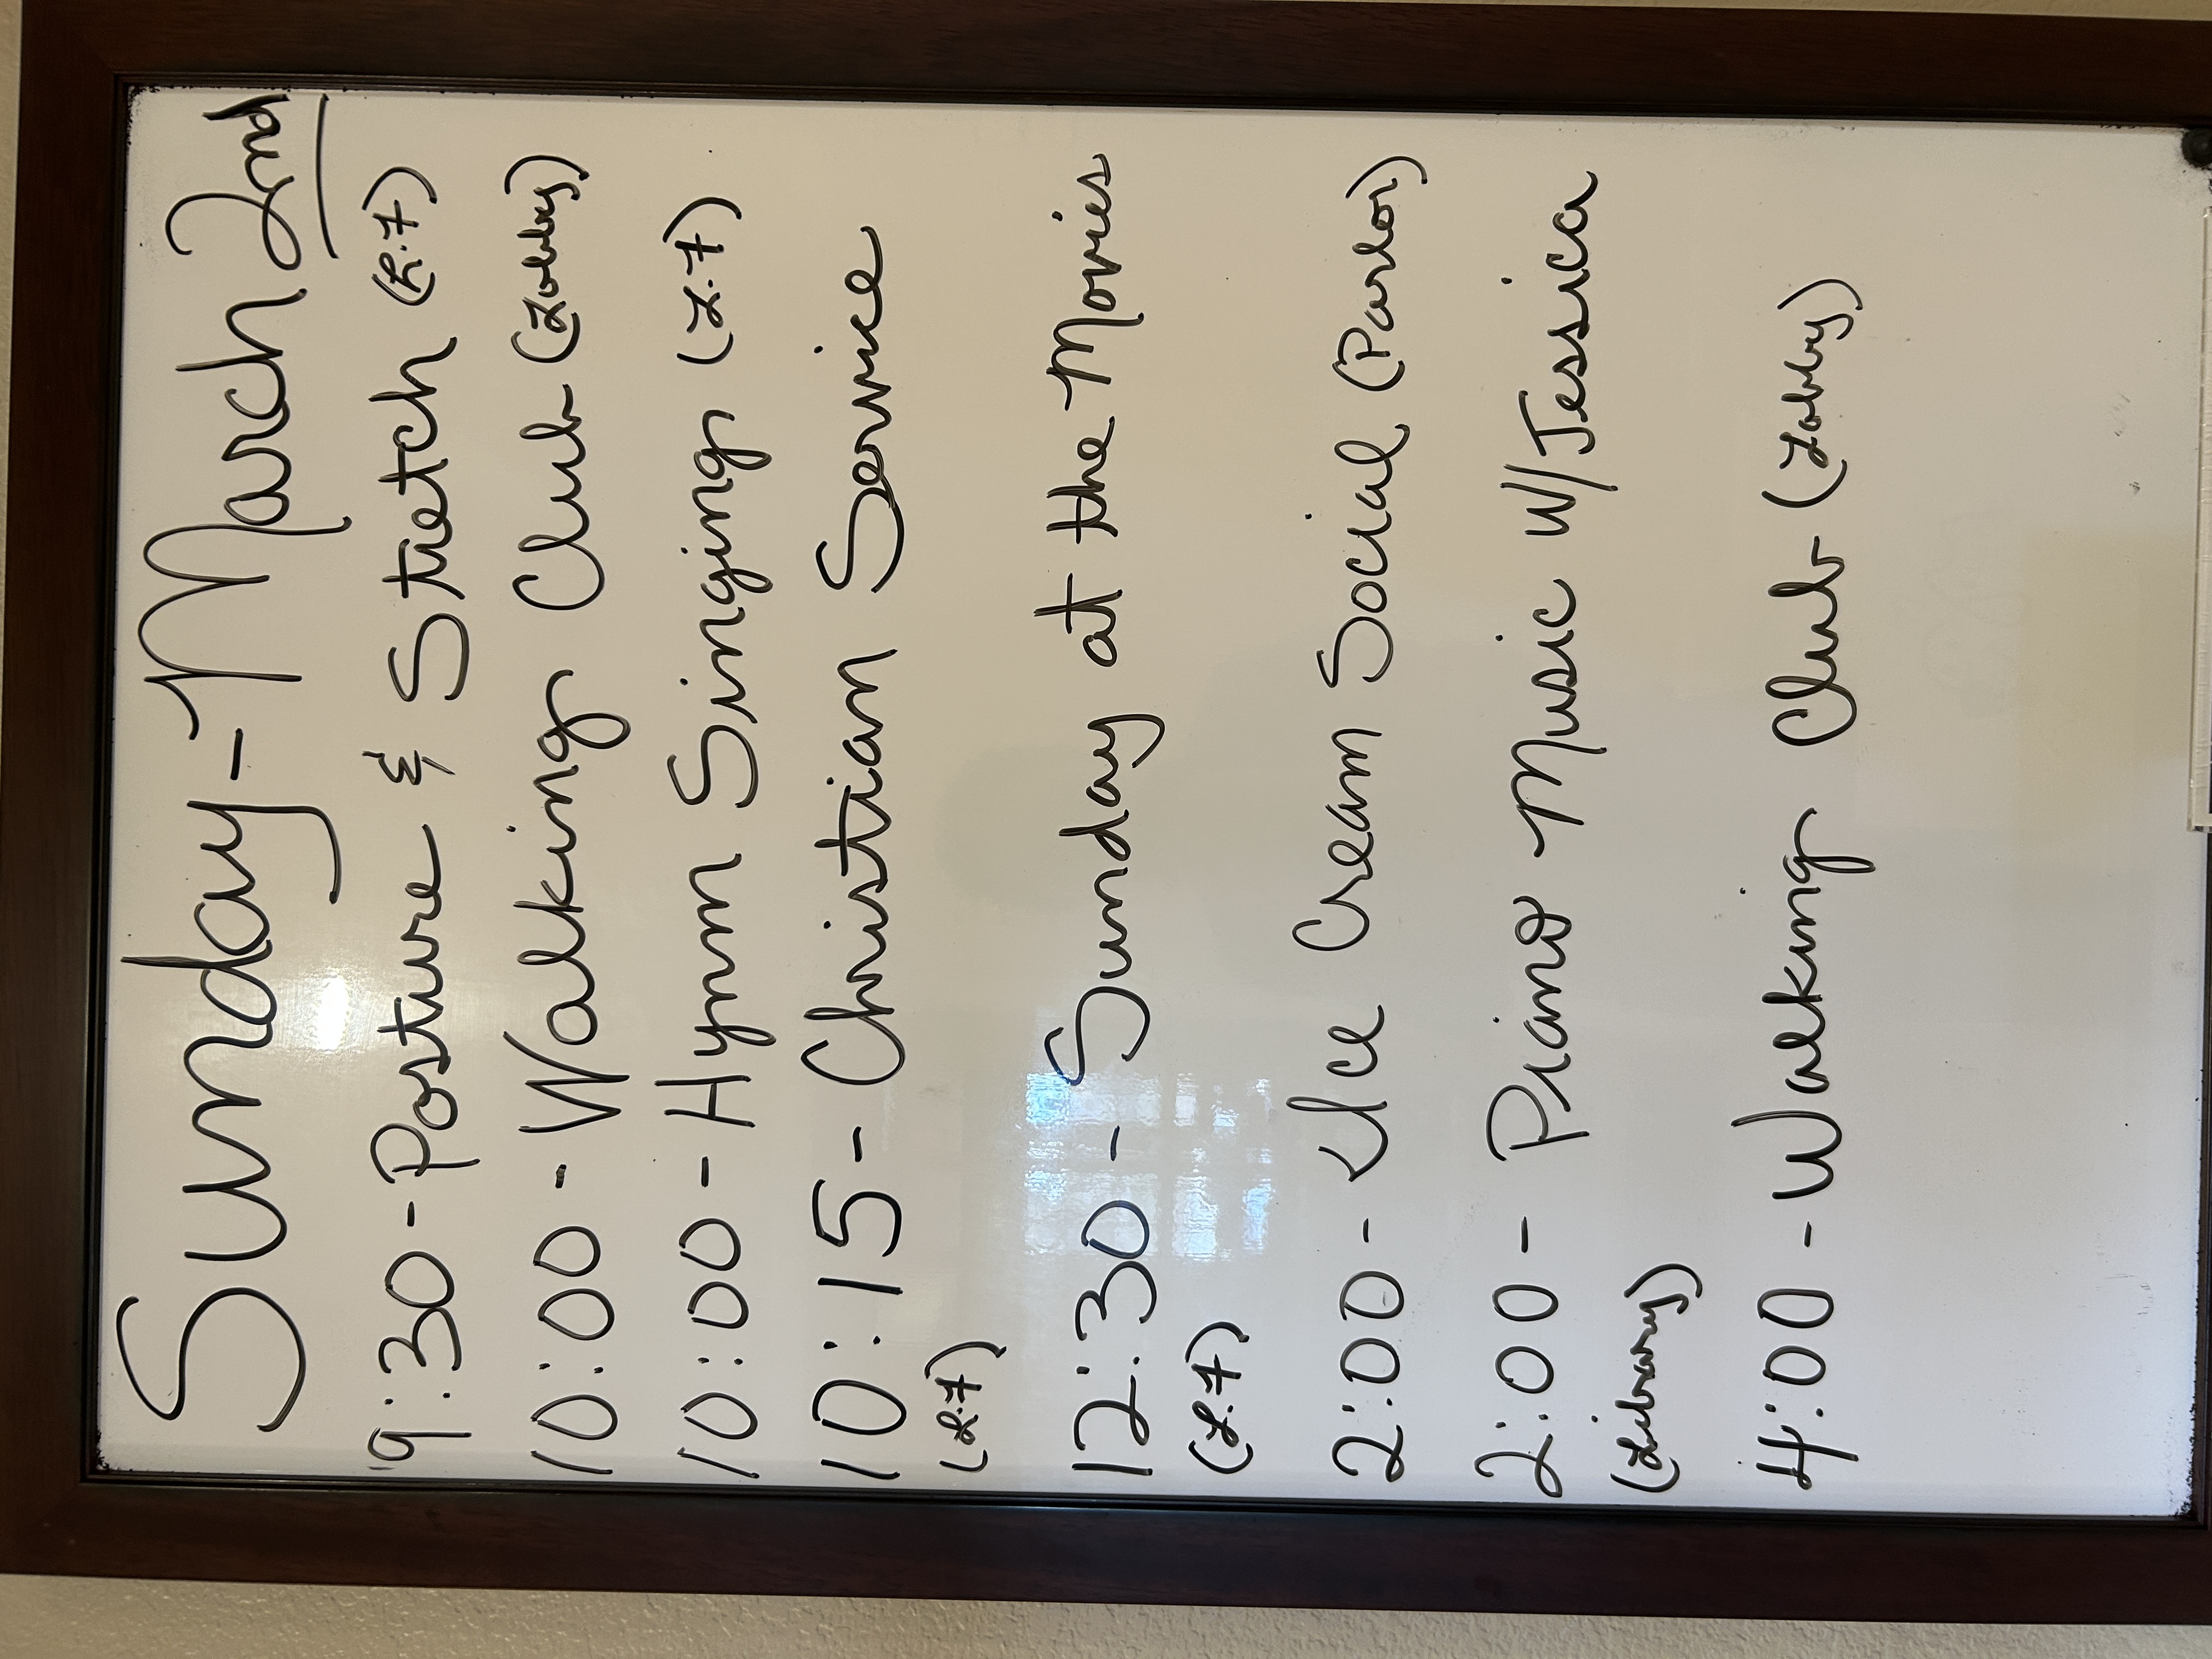 Sunday - March 2nd
9:30 - Posture & Stretch (L.7)
10:00 - Walking Club (Lobby)
10:00 - Hymn Singing (L.7)
10:15 - Christian Service
(L.7)
12:30 - Sunday at the Movies
(L.7)
2:00 - Ice Cream Social (Parlor)
2:00 - Piano Music w/ Jessica
(Library)
4:00 - Walking Club (Lobby)